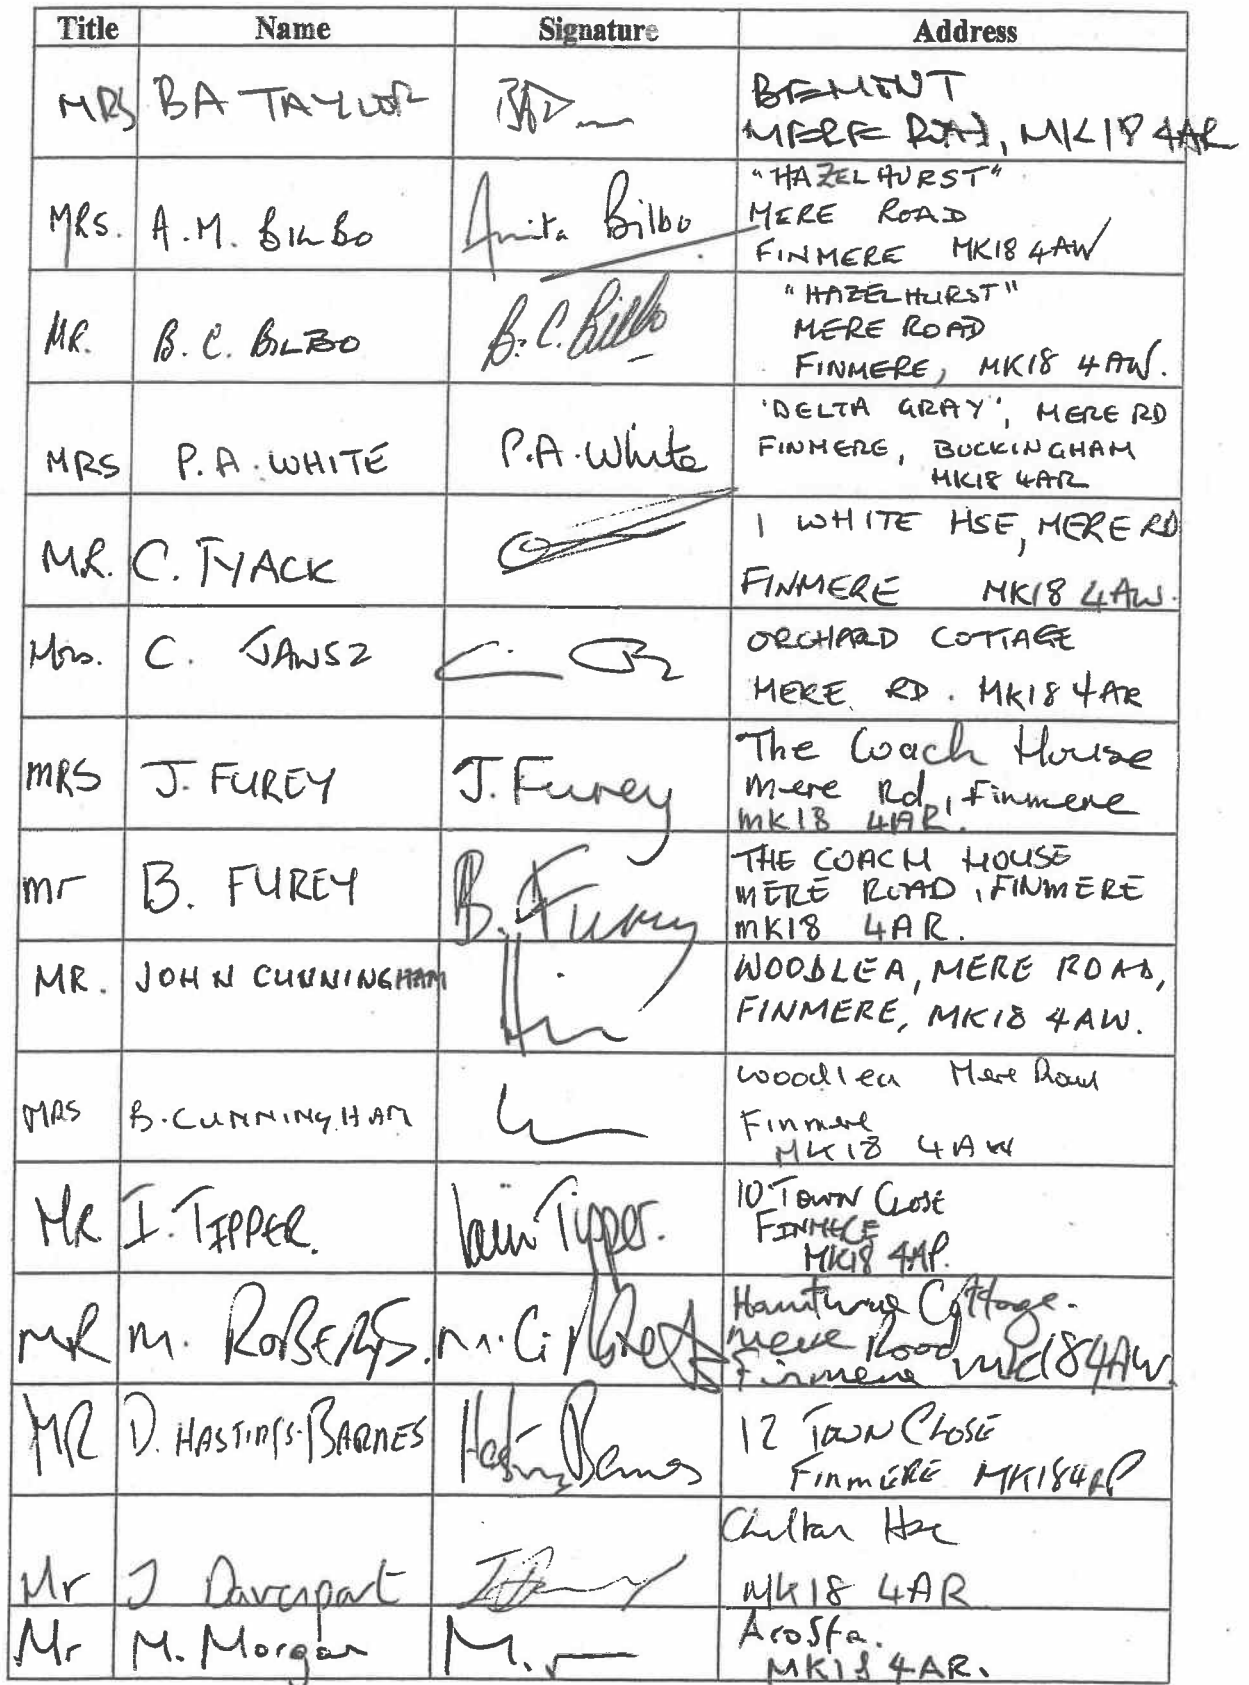 Title Name Signature Address
MRS BA TAYLOR BEMONT
MERE ROAD, MK18 4AR
MRS. A.M. BILBO Anita Bilbo "HAZELHURST"
MERE ROAD
FINMERE MK18 4AW
MR. B. C. BILBO B. C. Bilbo "HAZELHURST"
MERE ROAD
FINMERE, MK18 4AW.
MRS P.A. WHITE P.A. White 'DELTA GRAY', MERE RD
FINMERE, BUCKINGHAM
MK18 4AR
MR. C. TYACK 1 WHITE HSE, MERE RD
FINMERE MK18 4AW.
Mrs. C. JANSZ ORCHARD COTTAGE
MERE RD. MK18 4AR
MRS J. FUREY J. Furey The Coach House
Mere Rd, Finmere
MK18 4AR.
mr B. FUREY B. Furey THE COACH HOUSE
MERE ROAD, FINMERE
MK18 4AR.
MR. JOHN CUNNINGHAM WOODLEA, MERE ROAD,
FINMERE, MK18 4AW.
MRS B. CUNNINGHAM Woodlea Mere Road
Finmere
MK18 4AW
MR I. TIPPER. Iain Tipper. 10 TOWN CLOSE
FINMERE
MK18 4AP.
MR M. ROBERTS. Cottage.
Mere Road
Finmere MK18 4AW.
MR D. HASTINGS-BARNES Hastings Barnes 12 TOWN CLOSE
FINMERE MK18 4AP
Mr J Davenport Hse
MK18 4AR
Mr M. Morgan M. Arosfa.
MK18 4AR.